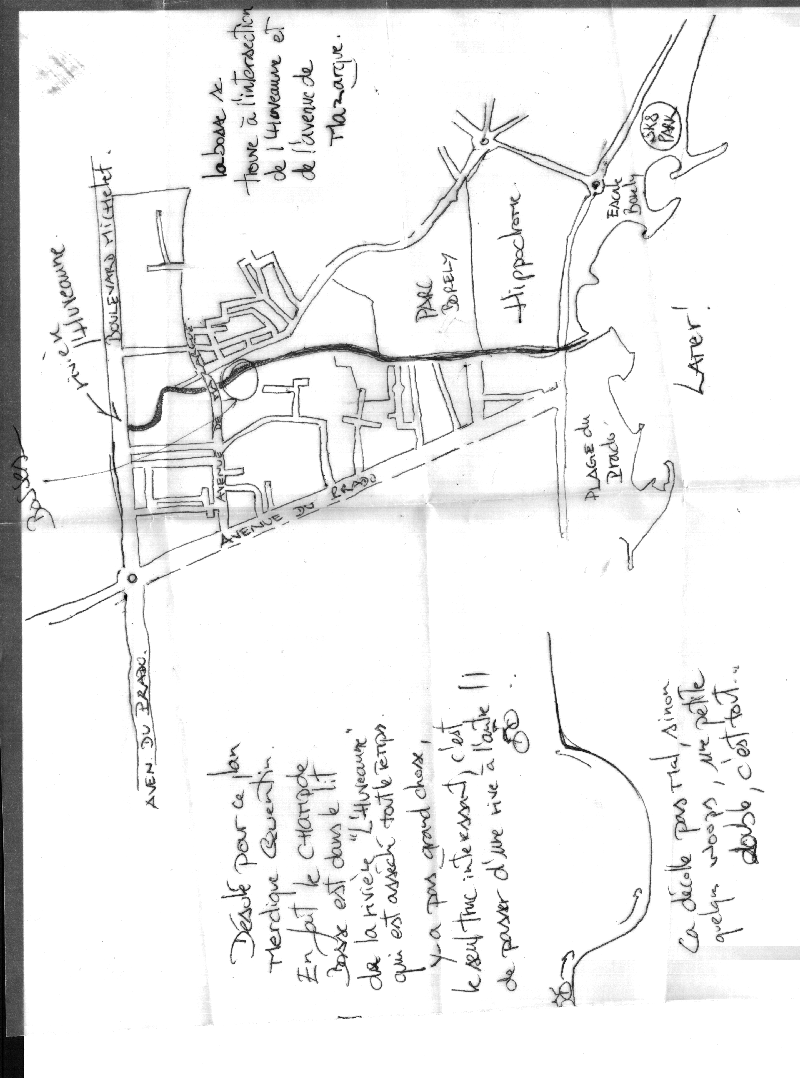 la bosse se
trouve à l'intersection
de l'Huveaune et
de l'avenue de
Mazargue.
BOULEVARD MICHELET.
rivière
l'Huveaune
Bosses
AVENUE DE
AVENUE DU PRADO
AVEN. DU PRADO.
PARC
BORELY
Hippodrome.
SK8
PARK
Escale
Borely
PLAGE du
Prado.
LATER!
Désolé pour ce plan
merdique Quentin.
En fait le champ de
Bosse est dans le lit
de la rivière "L'Huveaune"
qui est asséché tout le temps.
Y a pas grand chose,
le seul truc interessant, c'est
de passer d'une rive à l'autre !!
Ca décolle pas mal, sinon
quelqu woops, une petite
double, c'est tout...